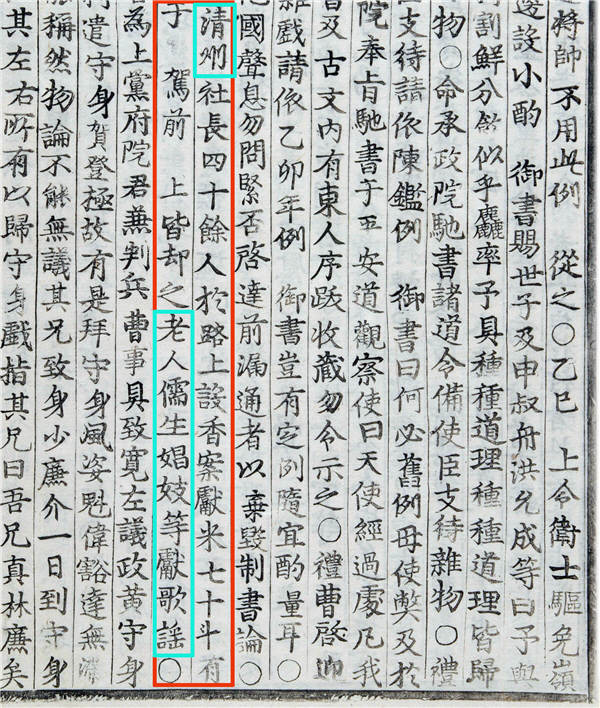 將帥不用此例　從之○乙巳　上令衛士驅兔嶺
設小酌　御書賜世子及申叔舟洪允成等曰予與
割鮮分飮似乎麤率予具種種道理種種道理皆歸
物○命承政院馳書諸道令備使臣支待雜物○禮
支待請依陳鑑例　御書曰何必舊例毋使弊及於
院奉旨馳書于平安道觀察使曰天使經過處凡我
及古文內有東人序跋收藏勿令示之○禮曹啓迎
雜戲請依乙卯年例　御書豈有定例隨宜酌量耳○
國聲息勿問緊否啓達前漏通者以棄毀制書論○
清州社長四十餘人於路上設香案獻米七十斗有
于　駕前　上皆却之老人儒生娼妓等獻歌謠○
為上黨府院君兼判兵曹事具致寬左議政黃守身
遣守身賀登極故有是拜守身風姿魁偉豁達無
稱然物論不能無議其兄致身少廉介一日到守身
其左右所有以歸守身戲指其兄曰吾兄真林廉矣